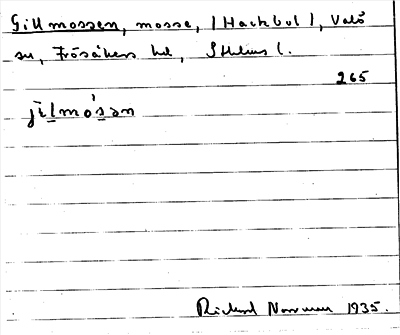 Gillmossen, mosse, (Hackbol), Valö
sn, Frösåkers hd, Sthlms l.
265
jìlmó̀sən
Rickard 1935.